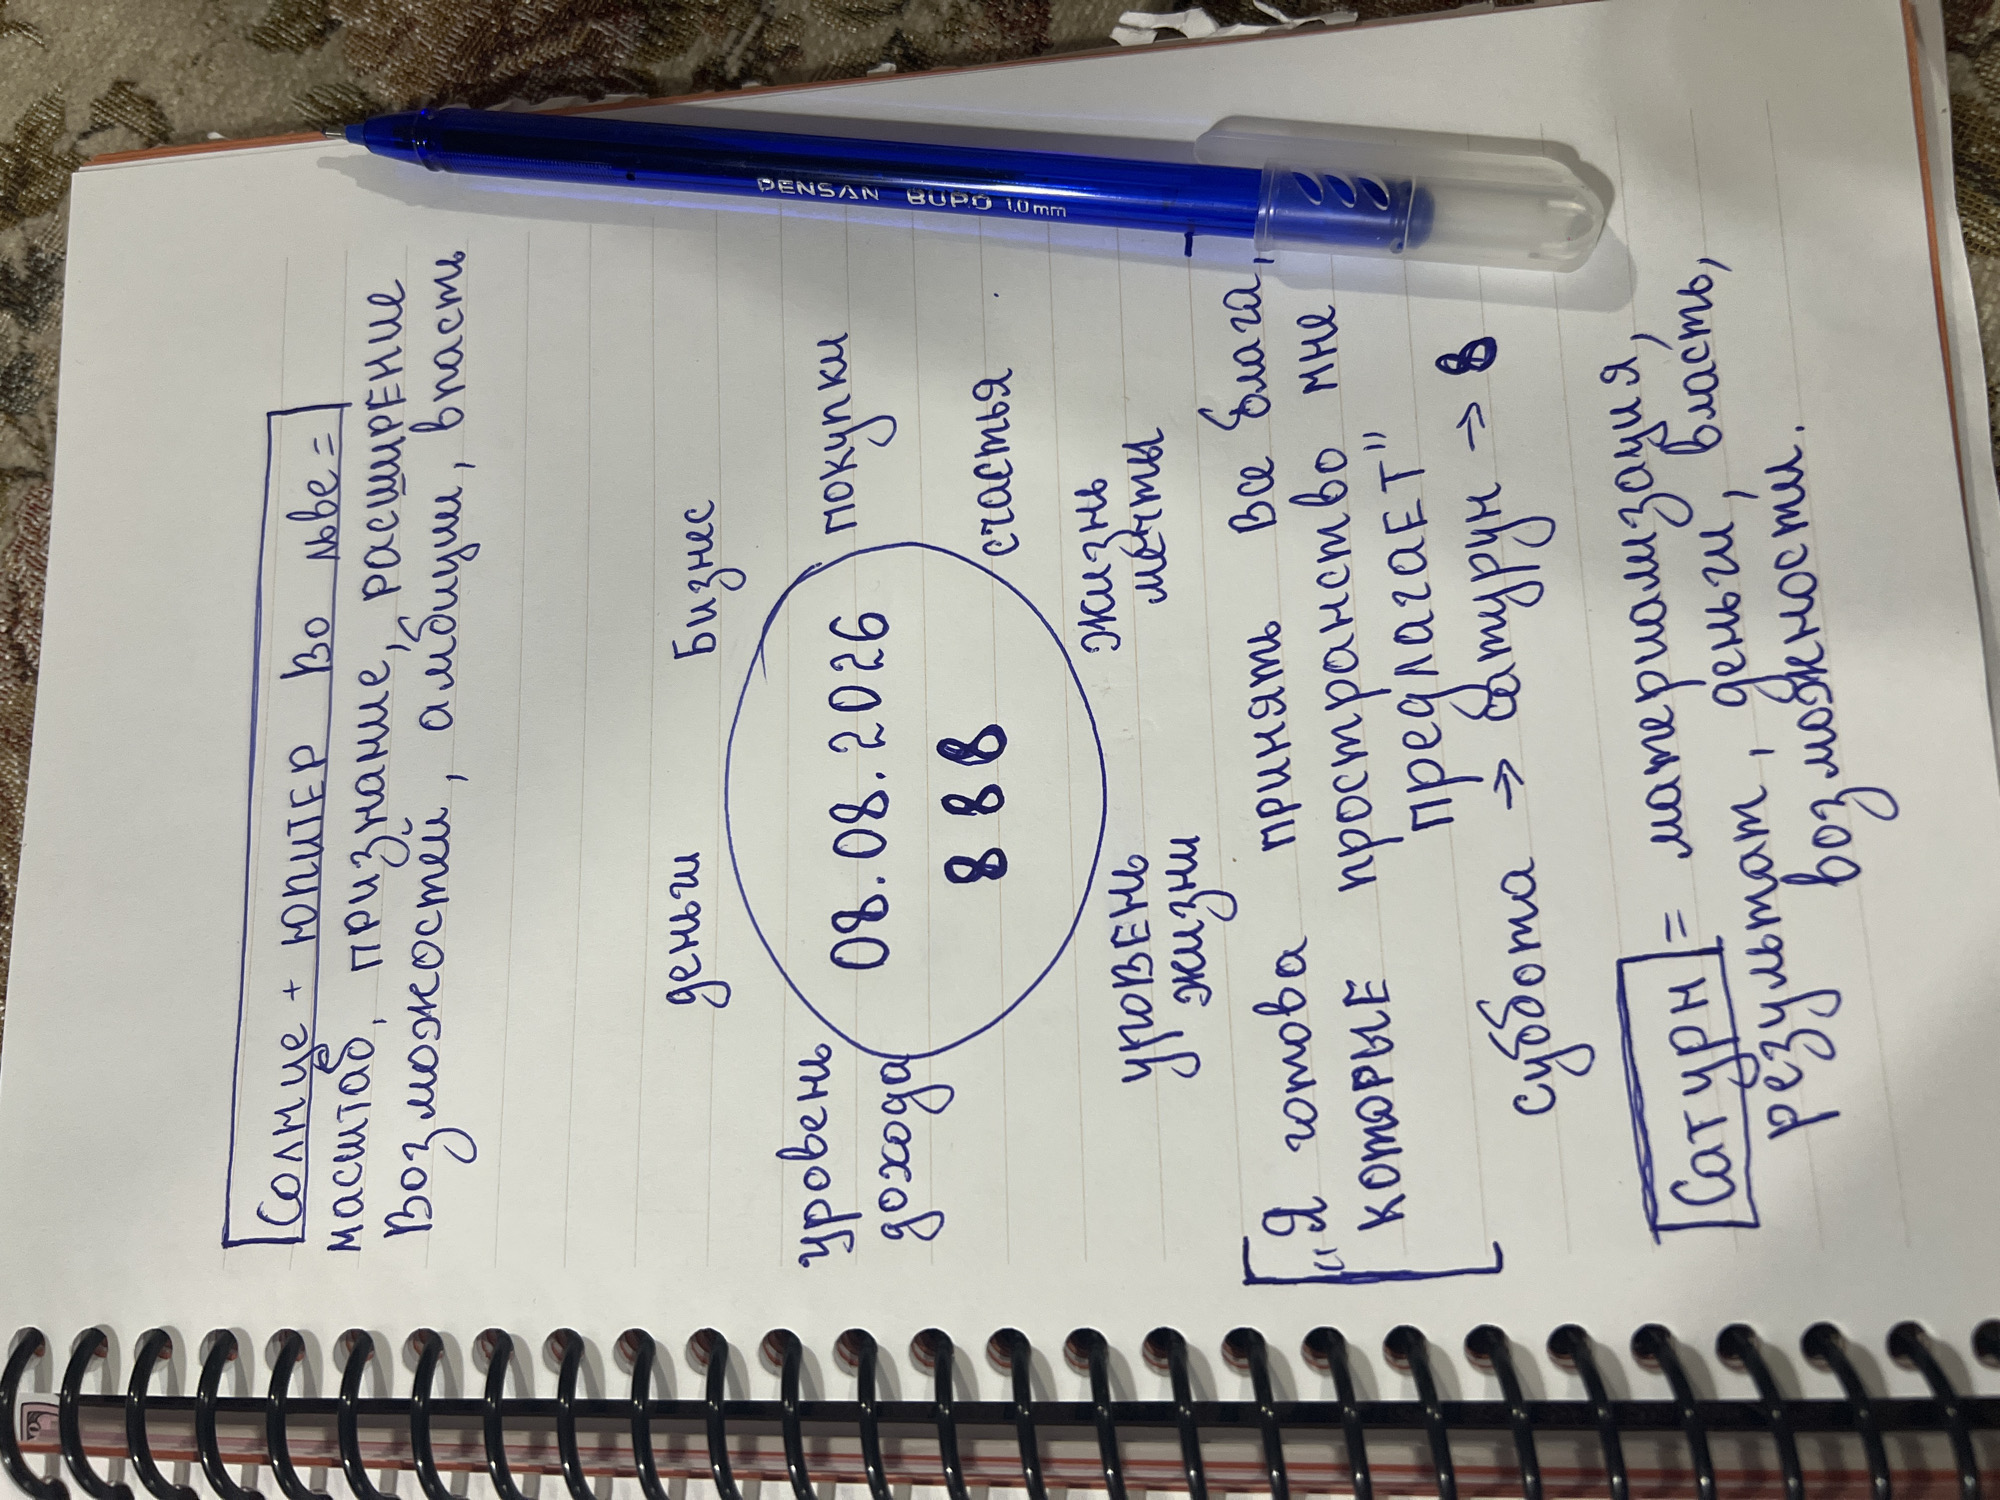 Солнце + Юпитер во льве =
масштаб, признание, расширение
возможостей, амбиции, власть
деньги бизнес
уровень дохода
покупки
08.08.2026
8 8 8
счастья
уровень жизни
жизнь мечты
"Я готова принять все блага,
которые пространство мне
предлагает"
суббота → Сатурн → 8
Сатурн = материализация,
результат, деньги, власть,
возможности.
PENSAN BUPO 1.0mm